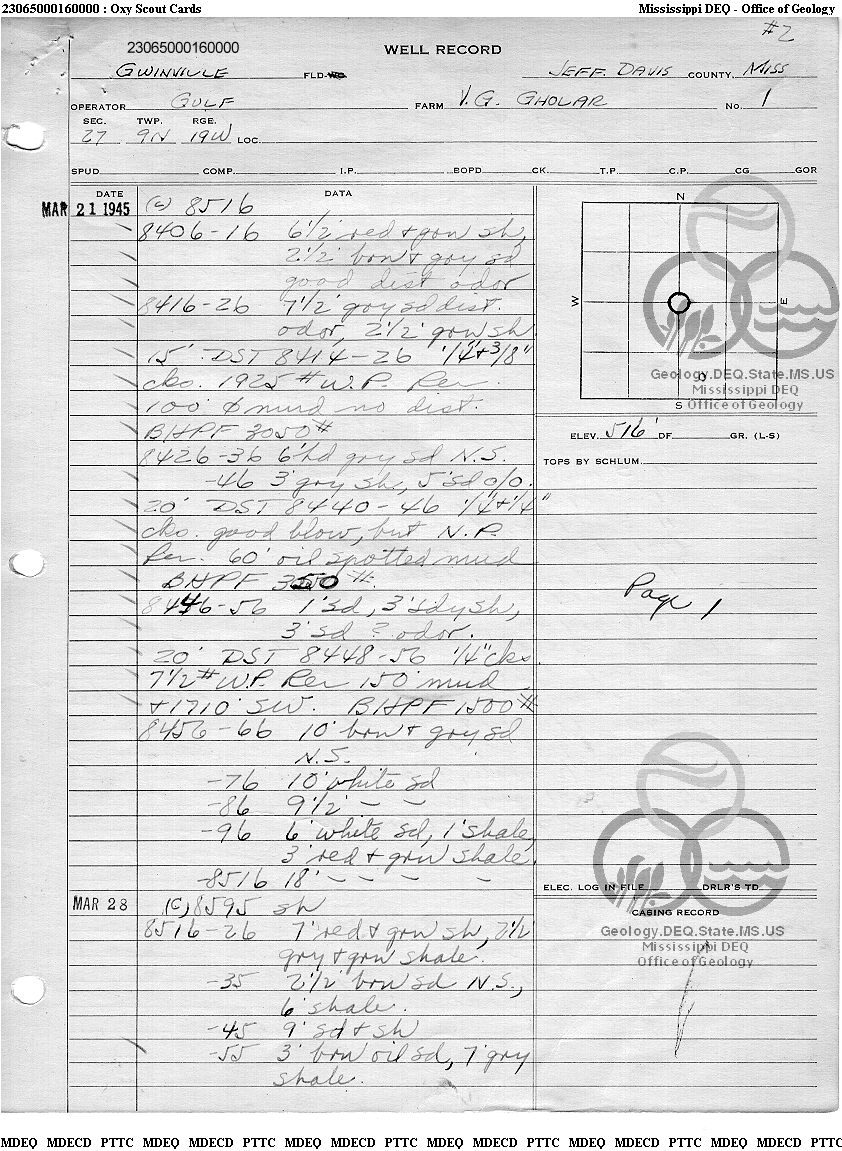 23065000160000 : Oxy Scout Cards Mississippi DEQ - Office of Geology
#2
23065000160000
WELL RECORD
GWINVILLE FLD. JEFF. DAVIS COUNTY, MISS
OPERATOR GULF FARM V.G. GHOLAR No. 1
SEC. TWP. RGE.
27 9N 19W LOC.
SPUD COMP. I.P. BOPD CK. T.P. C.P. CG GOR
DATE DATA
MAR 21 1945 (C) 8516
8406-16 6 1/2' red + grn sh,
2 1/2' brn & gry sd
good dist odor
8416-26 7 1/2' gry sd dist.
odor, 2 1/2' grn sh.
15' DST 8414-26 1/4"+3/8"
cks. 1925# W.P. Rec.
100' mud no dist.
BHPF 3050#
8426-36 6' hd gry sd N.S.
-46 3' gry sh, 5' sd o/o.
20' DST 8440-46 1/4"+1/4"
cks. good blow, but N.P.
Rec. 60' oil spotted mud
BHPF 3350#.
8446-56 1' sd, 3' sdy sh,
3' sd ? odor.
20' DST 8448-56 1/4" cks.
7 1/2# W.P. Rec 150' mud
+1710' SW. BHPF 1500#
8456-66 10' brn & gry sd
N.S.
-76 10' white sd
-86 9 1/2' - -
-96 6' white sd, 1' shale,
3' red & grn shale,
-8516 18' - - - -
MAR 28 (C) 8595 sh
8516-26 7' red & grn sh, 2 1/2'
gry & grn shale.
-35 2 1/2' brn sd N.S.,
6' shale.
-45 9' sd & sh
-55 3' brn oil sd, 7' gry
shale.
N
W
E
S
Geology.DEQ.State.MS.US
Mississippi DEQ
Office of Geology
ELEV. 516' DF. GR. (L-S)
TOPS BY SCHLUM.
Page 1
ELEC. LOG IN FILE DRLR'S TD.
CASING RECORD
Geology.DEQ.State.MS.US
Mississippi DEQ
Office of Geology
MDEQ MDECD PTTC MDEQ MDECD PTTC MDEQ MDECD PTTC MDEQ MDECD PTTC MDEQ MDECD PTTC MDEQ MDECD PTTC